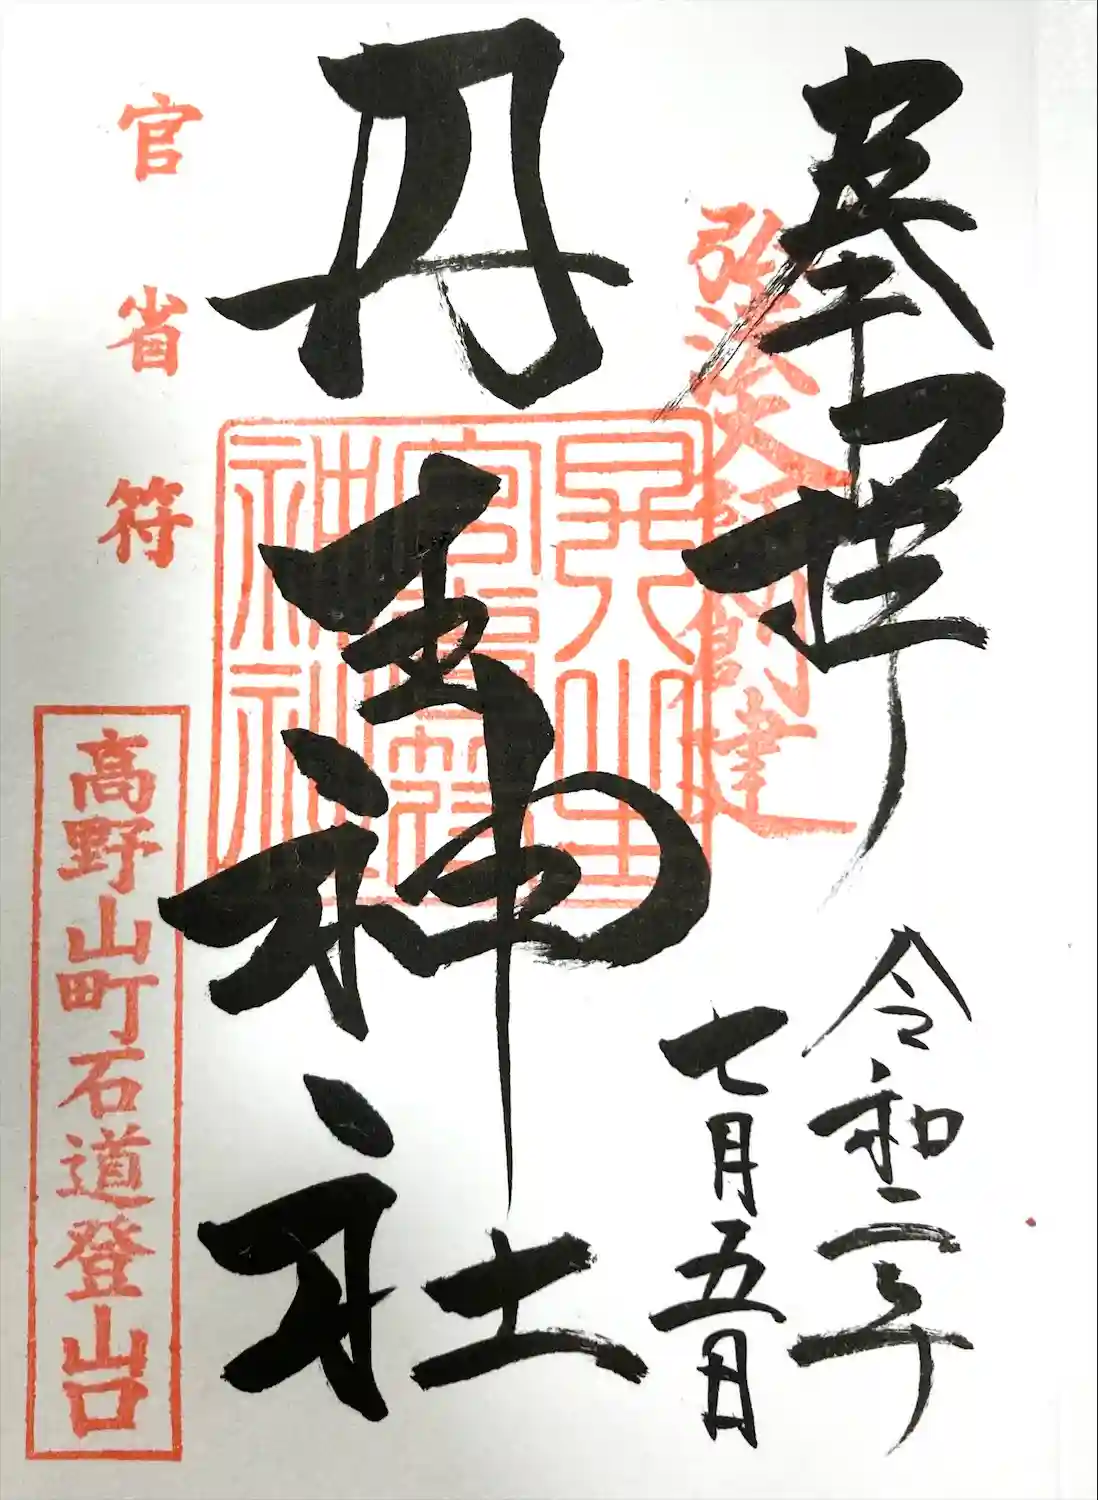 奉拝
弘法大師創建
令和二年
七月五日
丹生神社
丹生官省符神社
官省符
高野山町石道登山口